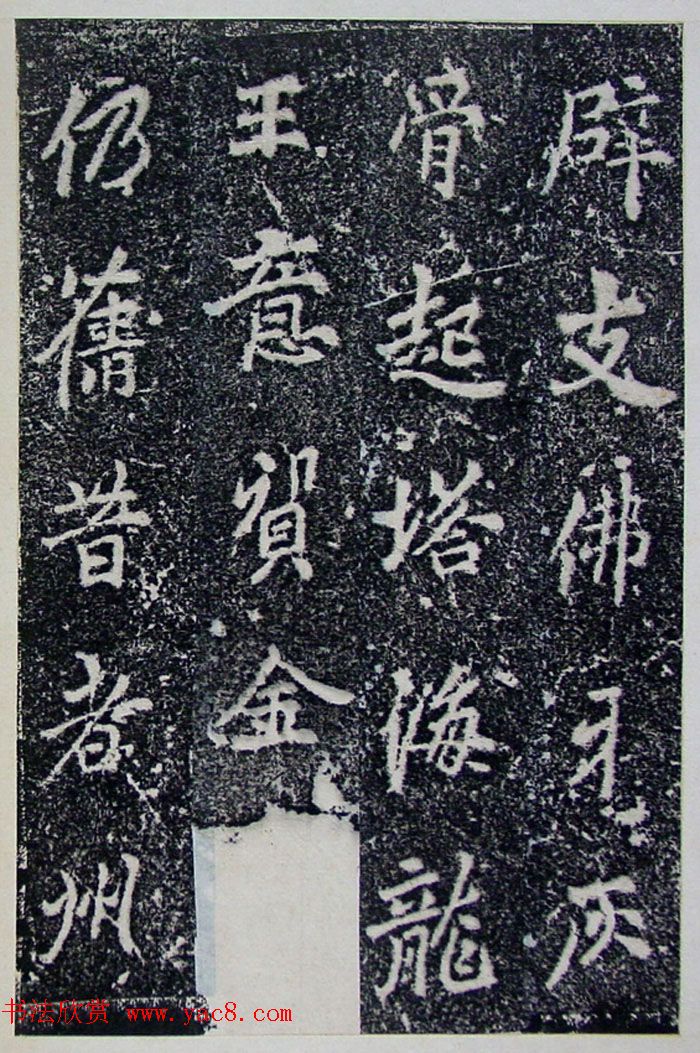 辟支佛牙灰
骨起塔海龍
王意賀金
仍舊昔者州
书法欣赏 www.yac8.com